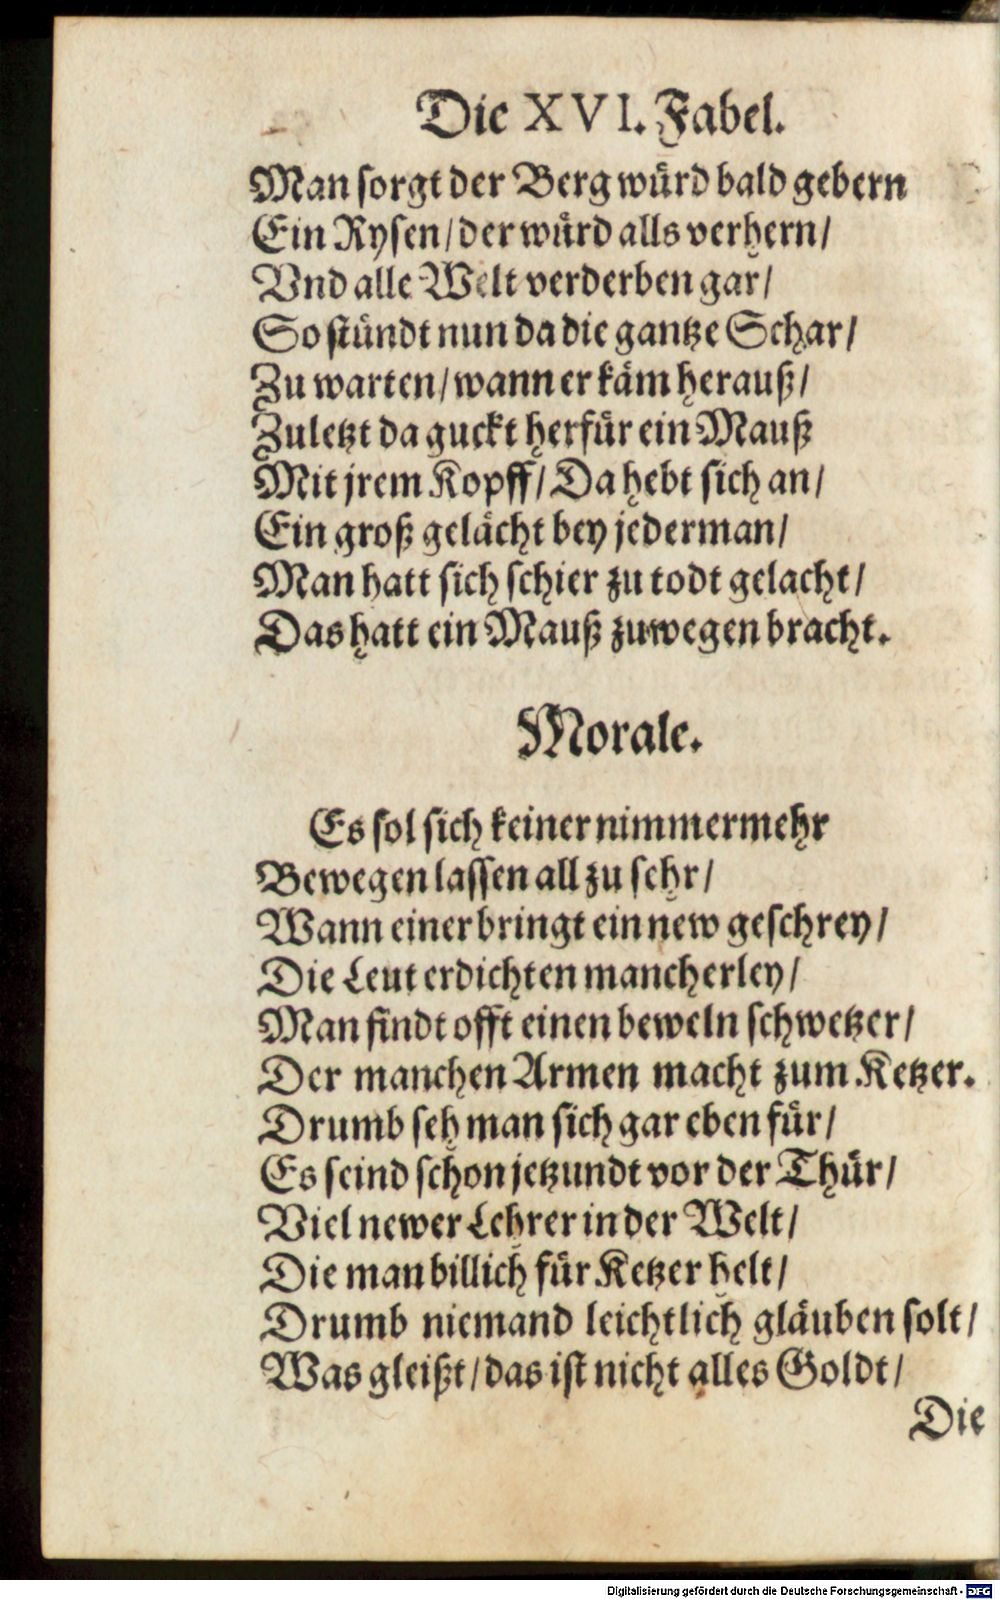 Die XVI. Fabel.
Man sorgt der Berg würd bald gebern
Ein Rysen/ der würd alls verhern/
Vnd alle Welt verderben gar/
So stündt nun da die gantze Schar/
Zu warten/ wann er käm herauß/
Zuletzt da guckt herfür ein Mauß
Mit jrem Kopff/ Da hebt sich an/
Ein groß gelächt bey jederman/
Man hatt sich schier zu todt gelacht/
Das hatt ein Mauß zuwegen bracht.
Morale.
Es sol sich keiner nimmermehr
Bewegen lassen all zu sehr/
Wann einer bringt ein new geschrey/
Die Leut erdichten mancherley/
Man findt offt einen beweln schwetzer/
Der manchen Armen macht zum Ketzer.
Drumb seh man sich gar eben für/
Es seind schon jetzundt vor der Thür/
Viel newer Lehrer in der Welt/
Die man billich für Ketzer helt/
Drumb niemand leichtlich gläuben solt/
Was gleißt/ das ist nicht alles Goldt/
Die
Digitalisierung gefördert durch die Deutsche Forschungsgemeinschaft - DFG